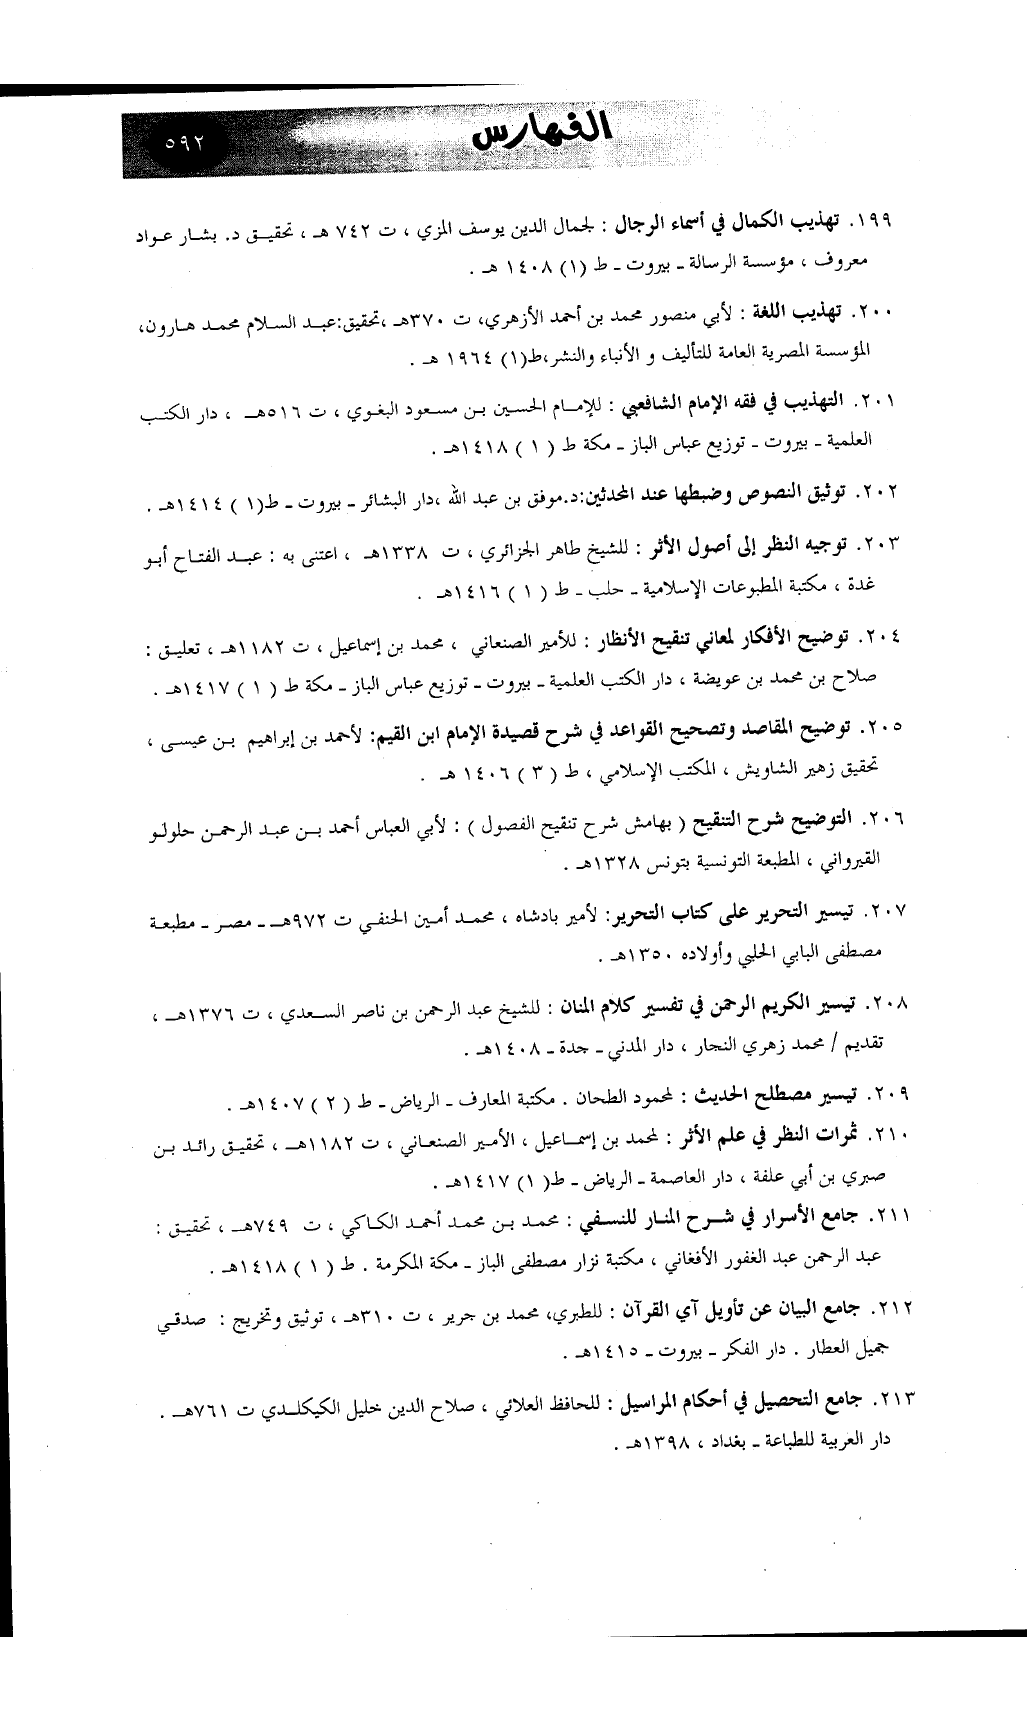 الفهارس
٥٩٢
١٩٩. تهذيب الكمال في أسماء الرجال : لجمال الدين يوسف المزي ، ت ٧٤٢ هـ ، تحقيق د. بشار عواد
معروف ، مؤسسة الرسالة ـ بيروت ـ ط (١) ١٤٠٨ هـ .
٢٠٠. تهذيب اللغة : لأبي منصور محمد بن أحمد الأزهري، ت ٣٧٠هـ ،تحقيق:عبد السلام محمد هارون،
المؤسسة المصرية العامة للتأليف و الأنباء والنشر،ط(١) ١٩٦٤ هـ .
٢٠١. التهذيب في فقه الإمام الشافعي : للإمام الحسين بن مسعود البغوي ، ت ٥١٦هـ ، دار الكتب
العلمية ـ بيروت ـ توزيع عباس الباز ـ مكة ط ( ١ ) ١٤١٨هـ .
٢٠٢. توثيق النصوص وضبطها عند المحدثين:د.موفق بن عبد الله ،دار البشائر ـ بيروت ـ ط(١ ) ١٤١٤هـ .
٢٠٣. توجيه النظر إلى أصول الأثر : للشيخ طاهر الجزائري ، ت ١٣٣٨هـ ، اعتنى به : عبد الفتاح أبو
غدة ، مكتبة المطبوعات الإسلامية ـ حلب ـ ط ( ١ ) ١٤١٦هـ .
٢٠٤. توضيح الأفكار لمعاني تنقيح الأنظار : للأمير الصنعاني ، محمد بن إسماعيل ، ت ١١٨٢هـ ، تعليق :
صلاح بن محمد بن عويضة ، دار الكتب العلمية ـ بيروت ـ توزيع عباس الباز ـ مكة ط ( ١ ) ١٤١٧هـ .
٢٠٥. توضيح المقاصد وتصحيح القواعد في شرح قصيدة الإمام ابن القيم: لأحمد بن إبراهيم بن عيسى ،
تحقيق زهير الشاويش ، المكتب الإسلامي ، ط ( ٣ ) ١٤٠٦ هـ .
٢٠٦. التوضيح شرح التنقيح ( بهامش شرح تنقيح الفصول ) : لأبي العباس أحمد بن عبد الرحمن حلولو
القيرواني ، المطبعة التونسية بتونس ١٣٢٨هـ .
٢٠٧. تيسير التحرير على كتاب التحرير: لأمير بادشاه ، محمد أمين الحنفي ت ٩٧٢هـ ـ مصر ـ مطبعة
مصطفى البابي الحلبي وأولاده ١٣٥٠هـ .
٢٠٨. تيسير الكريم الرحمن في تفسير كلام المنان : للشيخ عبد الرحمن بن ناصر السعدي ، ت ١٣٧٦هـ ،
تقديم / محمد زهري النجار ، دار المدني ـ جدة ـ ١٤٠٨هـ .
٢٠٩. تيسير مصطلح الحديث : لمحمود الطحان . مكتبة المعارف ـ الرياض ـ ط ( ٢ ) ١٤٠٧هـ .
٢١٠. ثمرات النظر في علم الأثر : لمحمد بن إسماعيل ، الأمير الصنعاني ، ت ١١٨٢هـ ، تحقيق رائد بن
صبري بن أبي علفة ، دار العاصمة ـ الرياض ـ ط( ١) ١٤١٧هـ .
٢١١. جامع الأسرار في شرح المنار للنسفي : محمد بن محمد أحمد الكاكي ، ت ٧٤٩هـ ، تحقيق :
عبد الرحمن عبد الغفور الأفغاني ، مكتبة نزار مصطفى الباز ـ مكة المكرمة . ط ( ١ ) ١٤١٨هـ .
٢١٢. جامع البيان عن تأويل آي القرآن : للطبري، محمد بن جرير ، ت ٣١٠هـ ، توثيق وتخريج : صدقي
جميل العطار . دار الفكر ـ بيروت ـ ١٤١٥هـ .
٢١٣. جامع التحصيل في أحكام المراسيل : للحافظ العلائي ، صلاح الدين خليل الكيكلدي ت ٧٦١هـ .
دار العربية للطباعة ـ بغداد ، ١٣٩٨هـ .